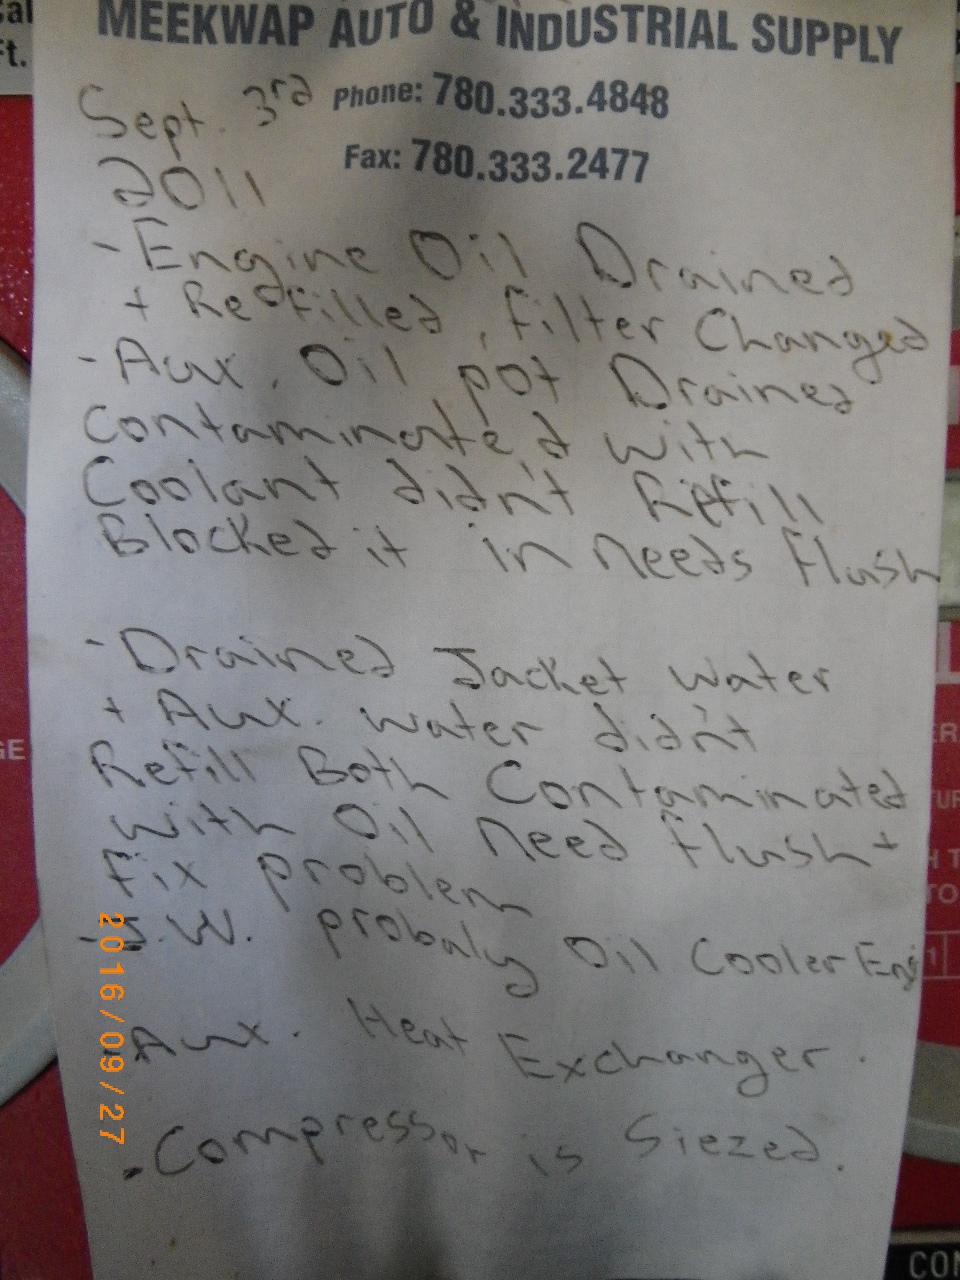 MEEKWAP AUTO & INDUSTRIAL SUPPLY
Phone: 780.333.4848
Fax: 780.333.2477
Sept. 3rd
2011
- Engine Oil Drained
+ Refilled, filter Changed
- Aux. Oil pot Drained
Contaminated with
Coolant didn't Refill
Blocked it in needs flush
- Drained Jacket water
+ Aux. water didn't
Refill Both Contaminated
with Oil need flush +
fix problem
J.W. probaly Oil Cooler Eng
Aux. Heat Exchanger.
- Compressor is Siezed.
2016/09/27
Ft.
GE
ER
TUR
H T
TO
1
CON